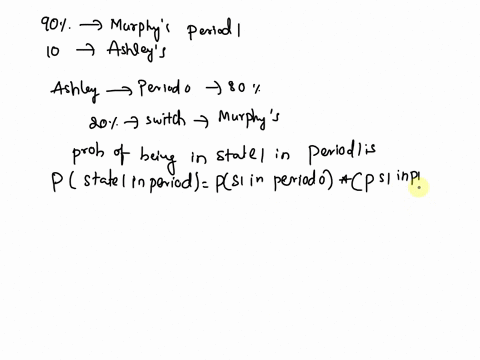 90% → Murphy's Period 1
10 → Ashley's
Ashley → Period 0 → 80%
20% → switch → Murphy's
prob of being in state 1 in Period 1 is
P( state 1 in period) = P(S1 in period 0) * (P S1 in P1